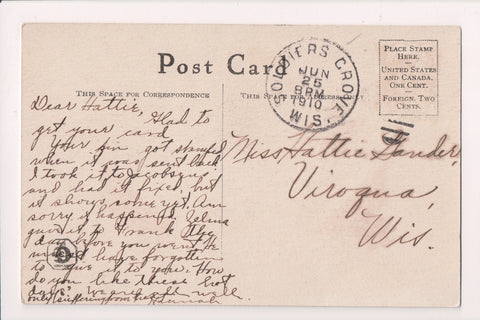 Post Card
THIS SPACE FOR CORRESPONDENCE
THIS SPACE FOR ADDRESS ONLY.
PLACE STAMP
HERE.
UNITED STATES
AND CANADA,
ONE CENT.
FOREIGN, TWO
CENTS.
SOLDIERS GROVE,
JUN
25
8PM
1910
WIS.
Dear Hattie,
Glad to
get your card
Your pin got stamped
when it was sent back
I took it to
and had it fixed, but
it shows some yet. Am
sorry it happened. Selma
gave it to Frank the
day before you went. He
must have forgotten
to give it to you. How
do you like these hot
days? We are all well.
only suffering from
Hannah
Miss Hattie Sander,
Viroqua,
Wis.